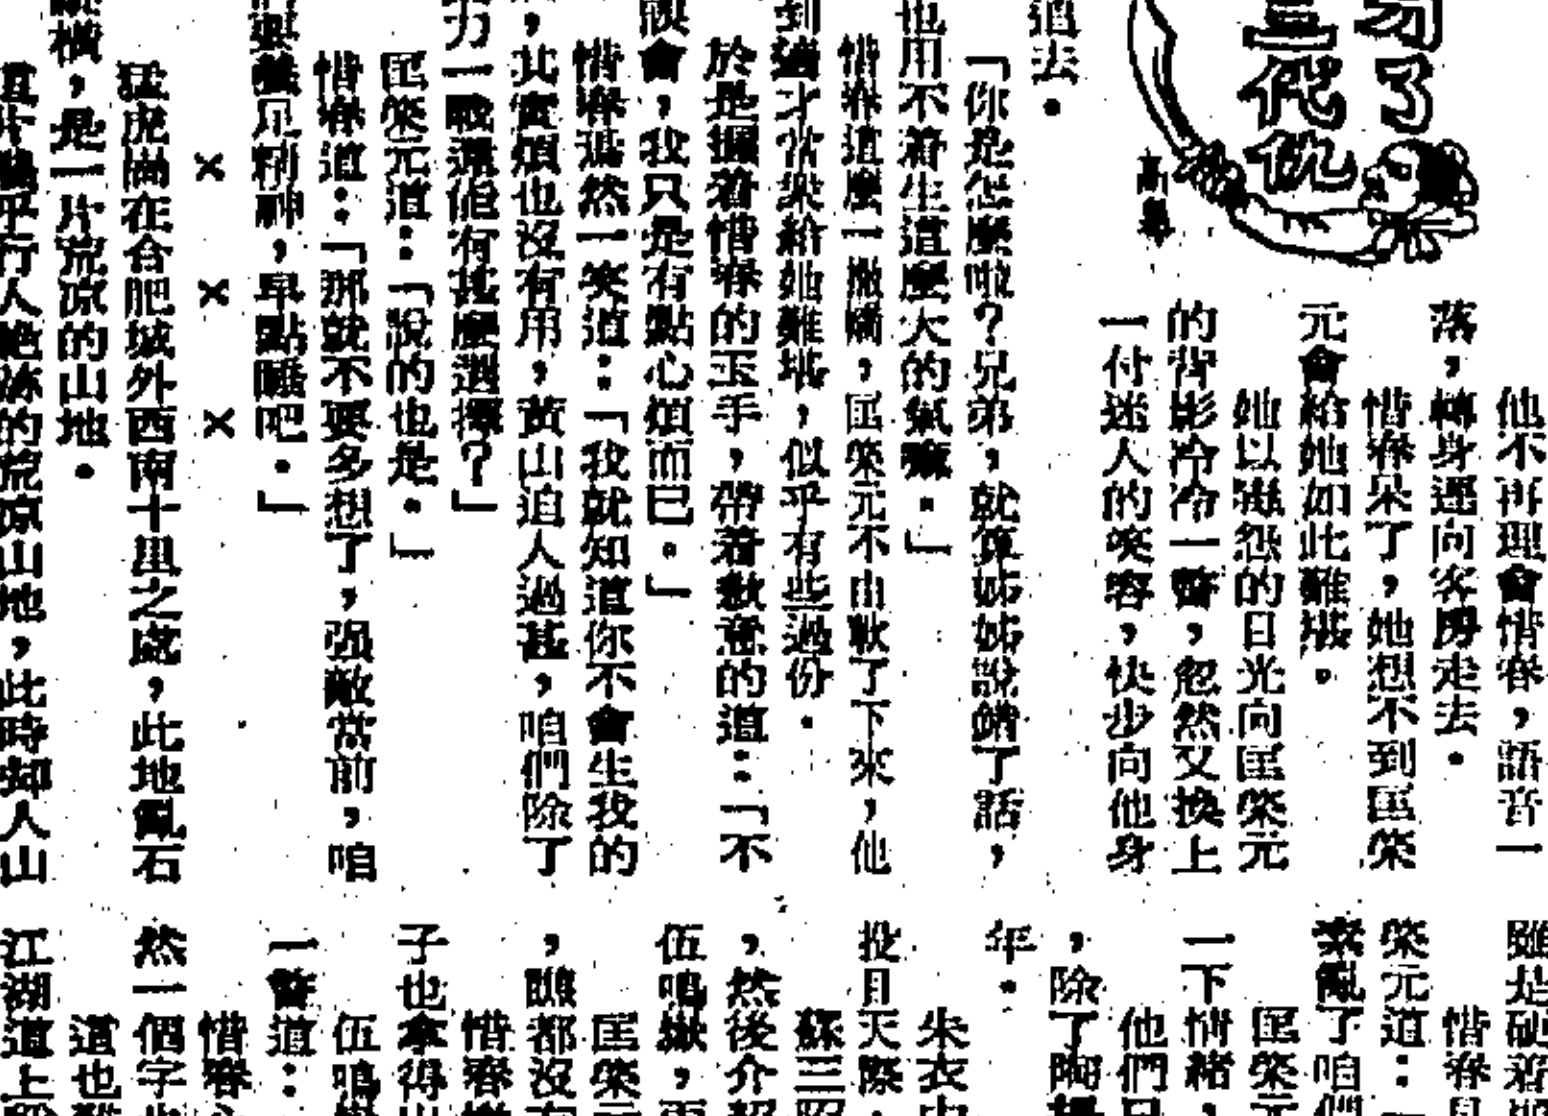 了
三代仇
高皋
他不再理會惜春，語音一
落，轉身逕向客房走去。
惜春呆了，她想不到匡榮
元會給她如此難堪。
她以幽怨的目光向匡榮元
的背影冷冷一瞥，忽然又換上
一付迷人的笑容，快步向他身
過去。
「你是怎麼啦？兄弟，就算姊姊說錯了話，
也用不着生這麼大的氣嘛。」
惜春這麼一撒嬌，匡榮元不由軟了下來，他
到適才當眾給她難堪，似乎有些過份。
於是握着惜春的玉手，帶着歉意的道：「不
會，我只是有點心煩而已。」
惜春嫣然一笑道：「我就知道你不會生我的
，其實煩也沒有用，黃山迫人過甚，咱們除了
力一戰還能有甚麼選擇？」
匡榮元道：「說的也是。」
惜春道：「那就不要多想了，强敵當前，咱
養足精神，早點睡吧。」
× × ×
猛虎崗在合肥城外西南十里之處，此地亂石
橫，是一片荒凉的山地。
這片幾乎行人絕跡的荒凉山地，此時却人山
雖是硬着
惜春
榮元道：
紊亂了咱們
匡榮元
一下情緒，
他們
，除了陶
年。
朱衣
投目天際，
蘇三
，然後介紹
伍鳴嶽，
匡榮元
，瞧都沒
惜春
子也拿得
伍鳴
一瞥道：
惜春
然一個字
這也難
江湖道上